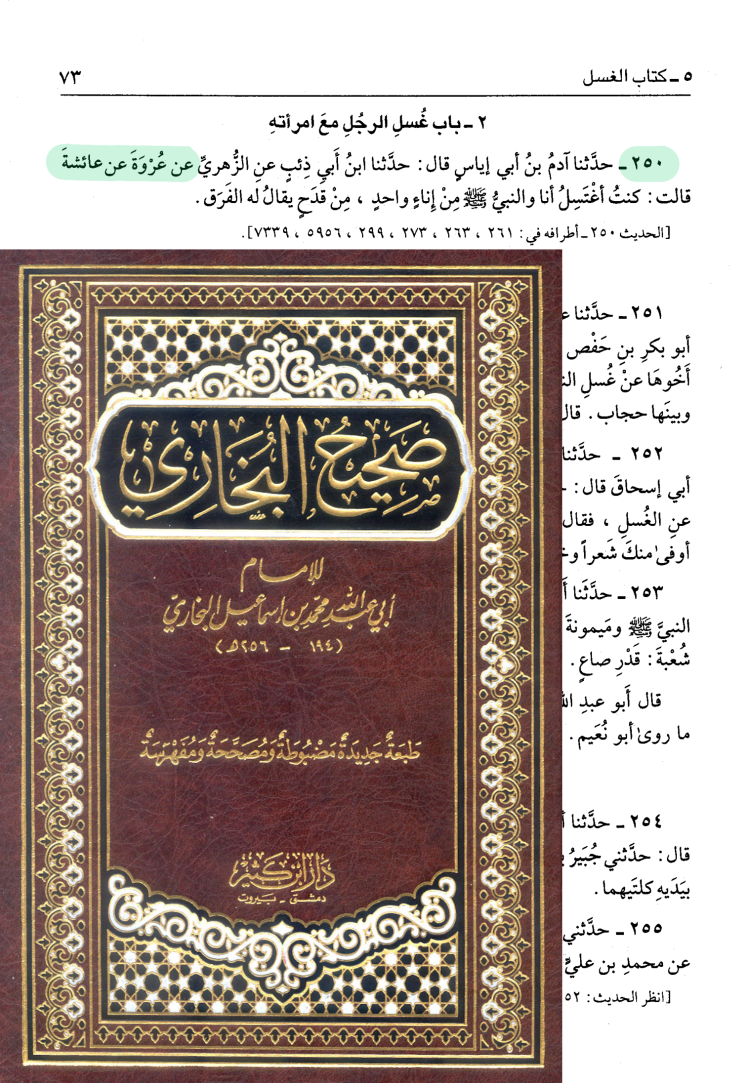 ٥ ـ كتاب الغسل ٧٣
٢ ـ باب غُسلِ الرجُلِ معَ امرأتهِ
٢٥٠ ـ حدَّثنا آدمُ بنُ أبي إياسٍ قال: حدَّثنا ابنُ أبي ذِئبٍ عنِ الزُّهريِّ عن عُرْوَةَ عن عائشةَ
قالت: كنتُ أغْتَسِلُ أنا والنبيُّ ﷺ مِنْ إناءٍ واحدٍ ، مِنْ قدَحٍ يقالُ له الفَرَق .
[الحديث ٢٥٠ ـ أطرافه في: ٢٦١ ، ٢٦٣ ، ٢٧٣ ، ٢٩٩ ، ٥٩٥٦ ، ٧٣٣٩].
٢٥١ ـ حدَّثنا
أبو بكرِ بنِ حَفْص
أَخُوهَا عنْ غُسلِ
وبينَها حجاب . قال
٢٥٢ ـ حدَّثنا
أبي إسحاقَ قال:
عنِ الغُسلِ ، فقال
أوفىٰ منكَ شَعراً
٢٥٣ ـ حدَّثنا
النبيَّ ﷺ ومَيمونةَ
شُعْبةَ: قَدْرِ صاعٍ .
قال أَبو عبدِ
ما روىٰ أبو نُعَيم .
٢٥٤ ـ حدَّثنا
قال: حدَّثني جُبَيرُ
بيَدَيهِ كلتَيهما.
٢٥٥ ـ حدَّثني
عن محمدِ بن عليٍّ
[انظر الحديث: ٥٢
صَحِيحُ البُخَارِي
للإمام
أبي عبد الله محمد بن اسماعيل البخاريّ
(١٩٤ - ٢٥٦هـ)
طَبعَةٌ جَدِيدَةٌ مَضبُوطَةٌ وَمُصَحَّحَةٌ وَمُفَهْرَسَةٌ
دَارُ ابن كَثير
دمشق - بيروت